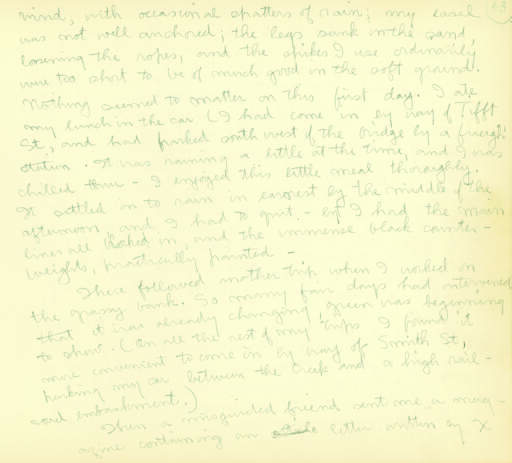 23
wind, with occasional spatters of rain; my easel
was not well anchored; the legs sank in the sand
loosening the ropes, and the spikes I use ordinarily
were too short to be of much good in the soft ground.
Nothing seemed to matter on this first day. I ate
my lunch in the car (I had come in by way of Tifft
St, and had parked southwest of the bridge by a freight
station. It was raining a little at the time, and I was
chilled thru - I enjoyed this little meal thoroughly.
It settled in to rain in earnest by the middle of the
afternoon, and I had to quit, - but I had the main
lines all in, and the immense black counter-
weights, practically painted -
There followed another trip when I worked on
the grassy bank. So many fair days had intervened
that it was already changing, green was beginning
to show. (On all the rest of my trips I found it
more convenient to come in by way of Smith St,
parking my car between the creek and a high rail-
road embankment.)
Then a misguided friend sent me a mag-
azine containing an letter written by